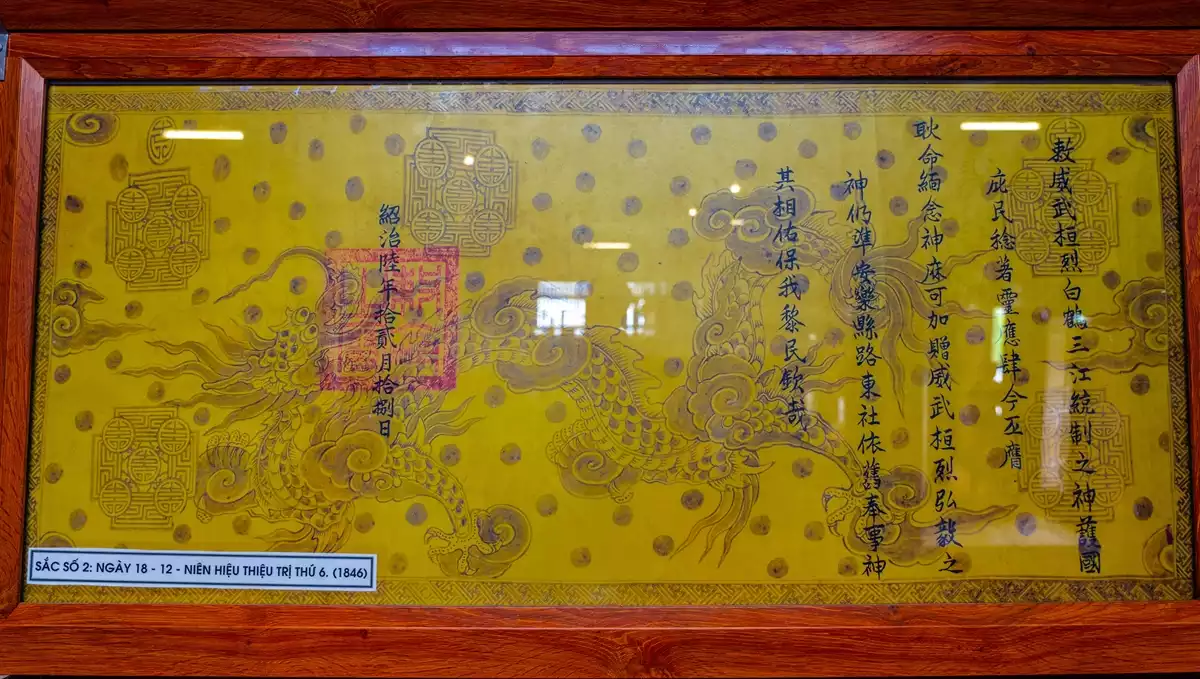 敕威武桓烈白鶴三江統制之神護國
庇民稔著靈應肆今丕膺
耿命緬念神庥可加贈威武桓烈弘毅之
神仍準安樂縣路東社依舊奉事神
其相佑保我黎民欽哉
紹治陸年拾貳月拾捌日
SẮC SỐ 2: NGÀY 18 - 12 - NIÊN HIỆU THIỆU TRỊ THỨ 6. (1846)